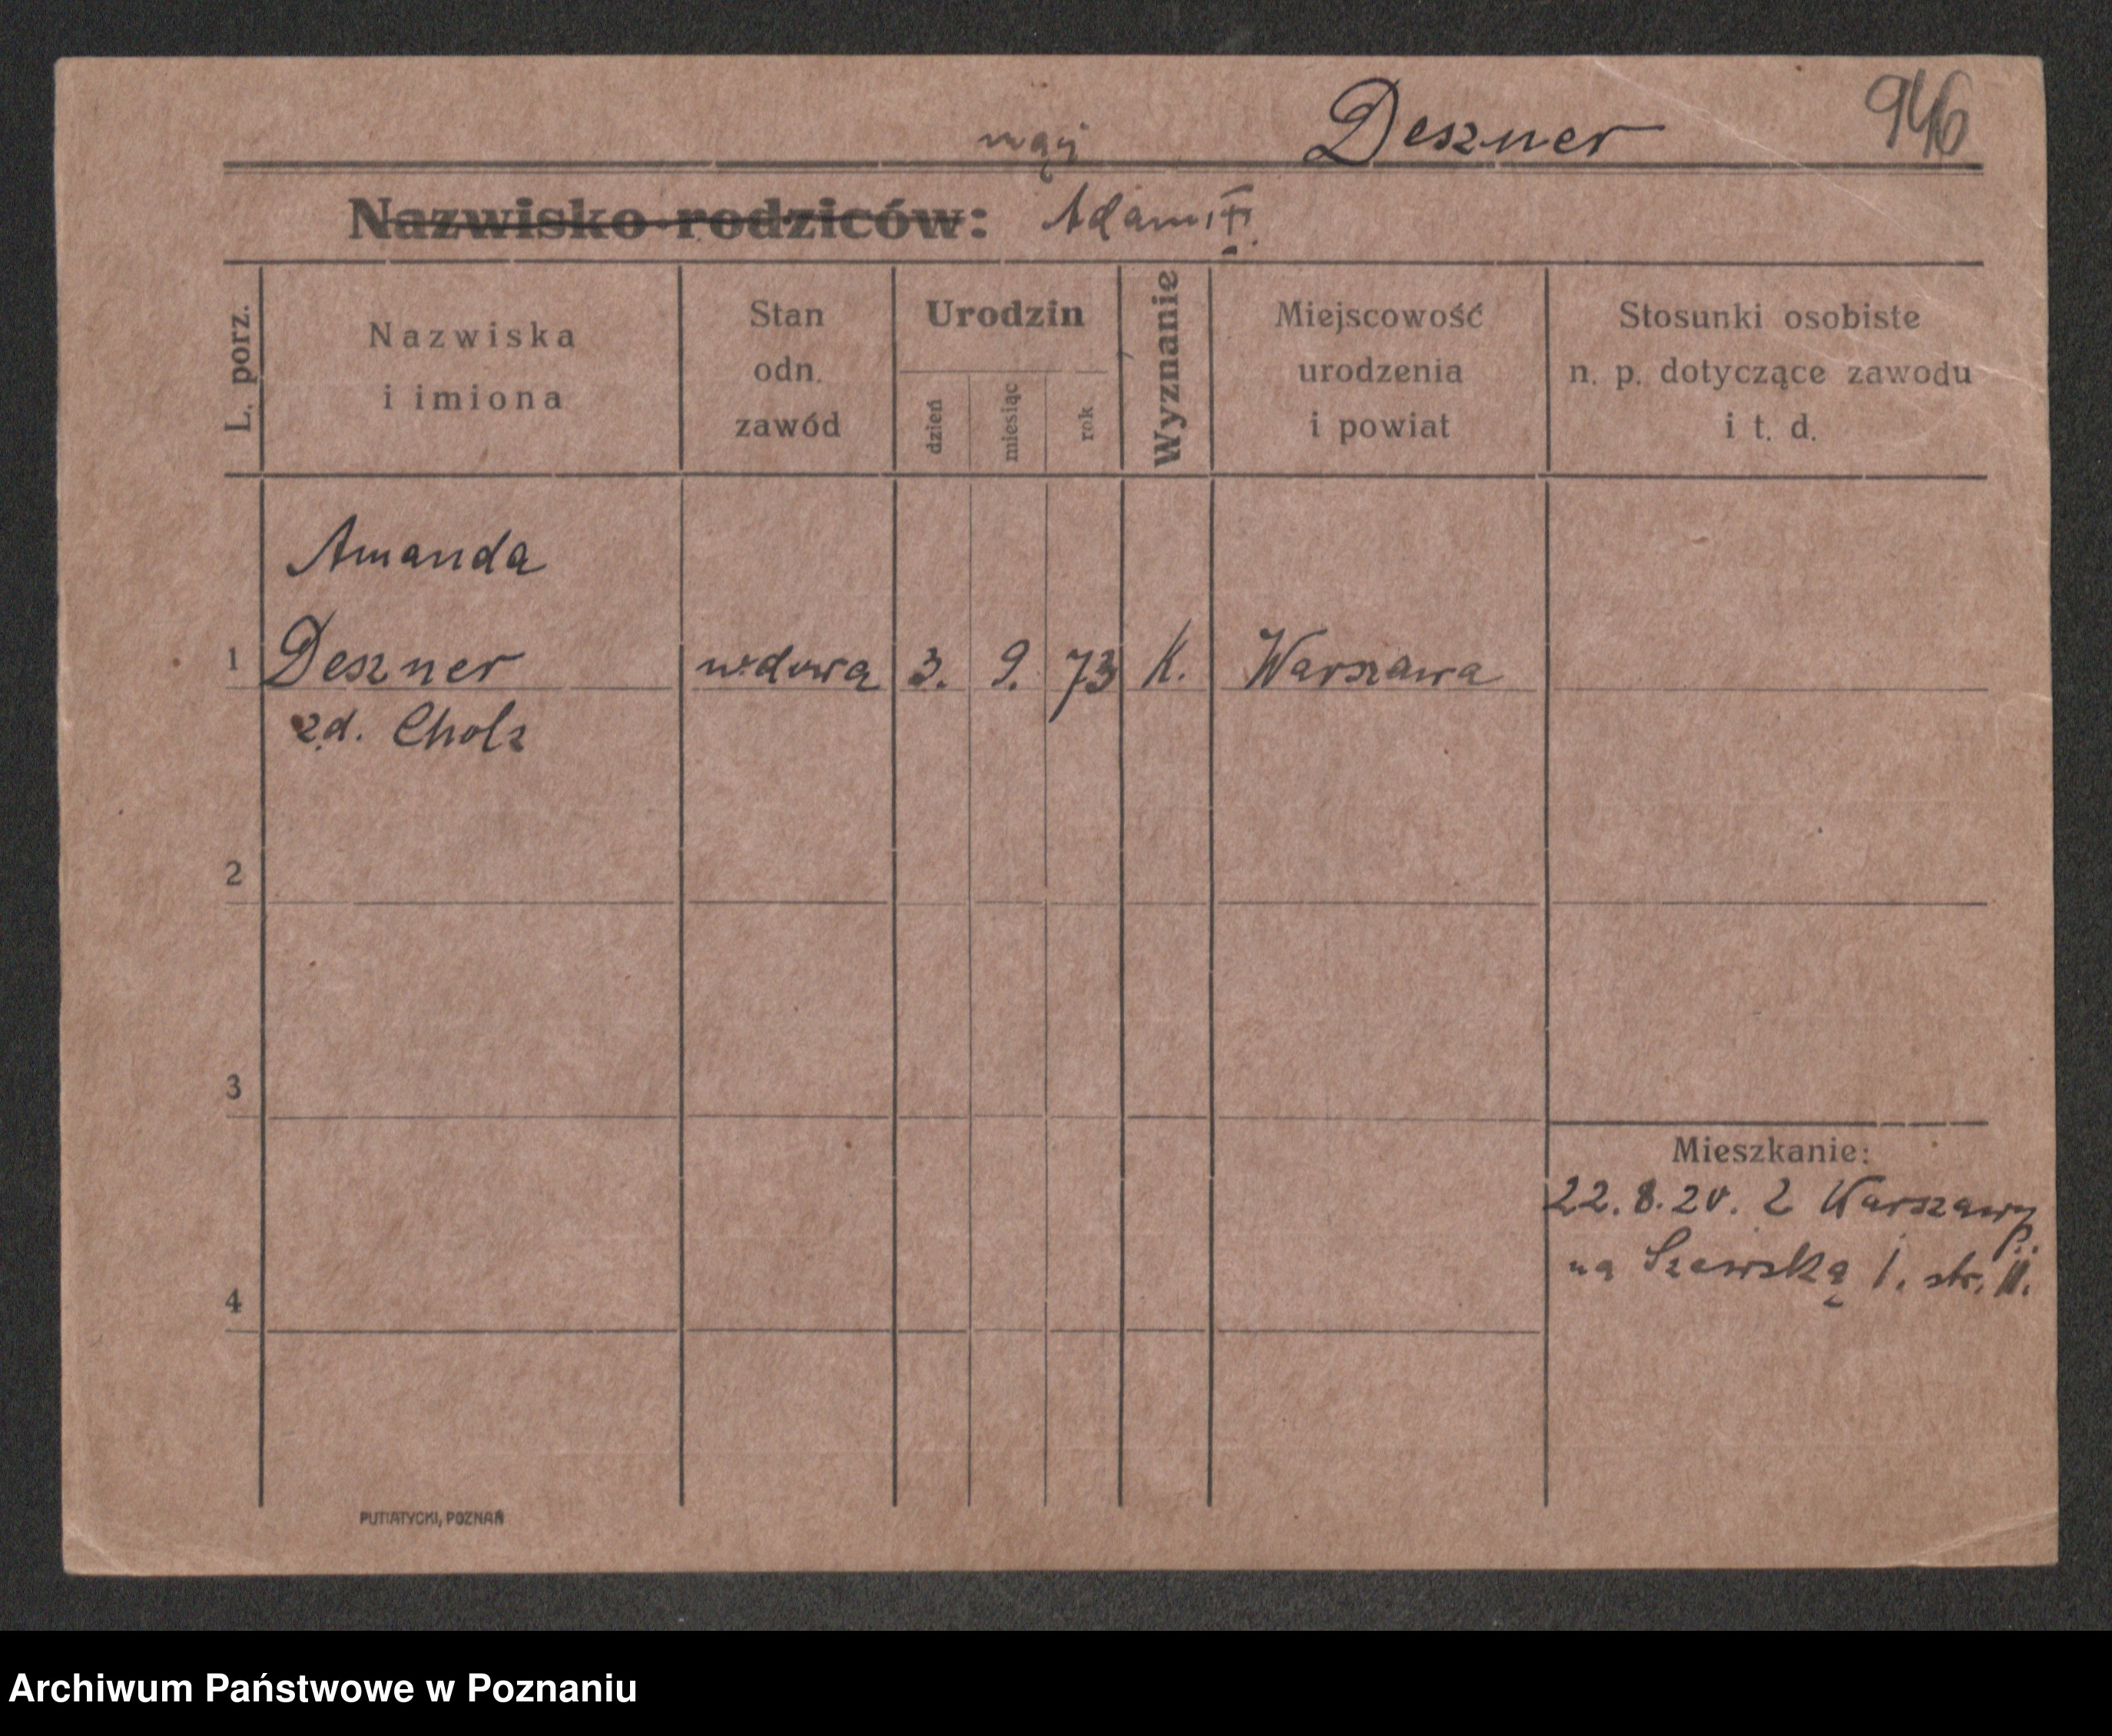 Deszner 946
mąż
Nazwisko rodziców: Adam
L. porz.
Nazwiska
i imiona
Stan
odn.
zawód
Urodzin
dzień
miesiąc
rok
Wyznanie
Miejscowość
urodzenia
i powiat
Stosunki osobiste
n. p. dotyczące zawodu
i t. d.
Amanda
1 Deszner wdowa 3. 9. 73 K. Warszawa
zd. Cholz
2
3
Mieszkanie:
22.8.20. z Warszawy
na Szewską 1. str. II.
4
PUTIATYCKI, POZNAŃ
Archiwum Państwowe w Poznaniu